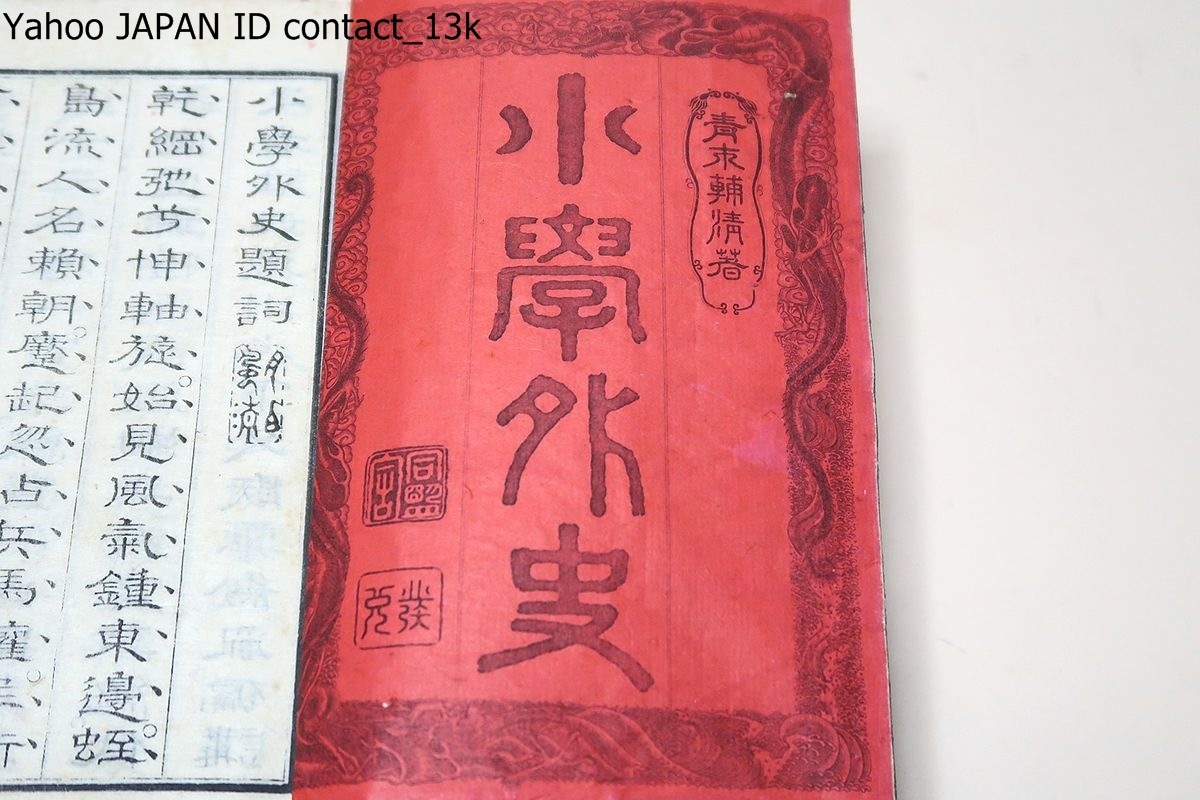 Yahoo JAPAN ID contact_13k
青木輔清著
小學外史
小學外史題詞
乾綱弛兮坤軸旋始見風氣鍾東邊蛭
島流人名賴朝蹷起忽占兵馬權